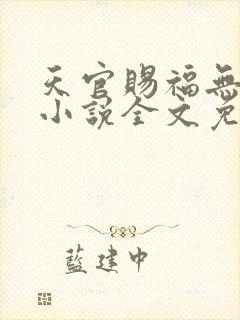 天官賜福無
小說全文免
藍建中